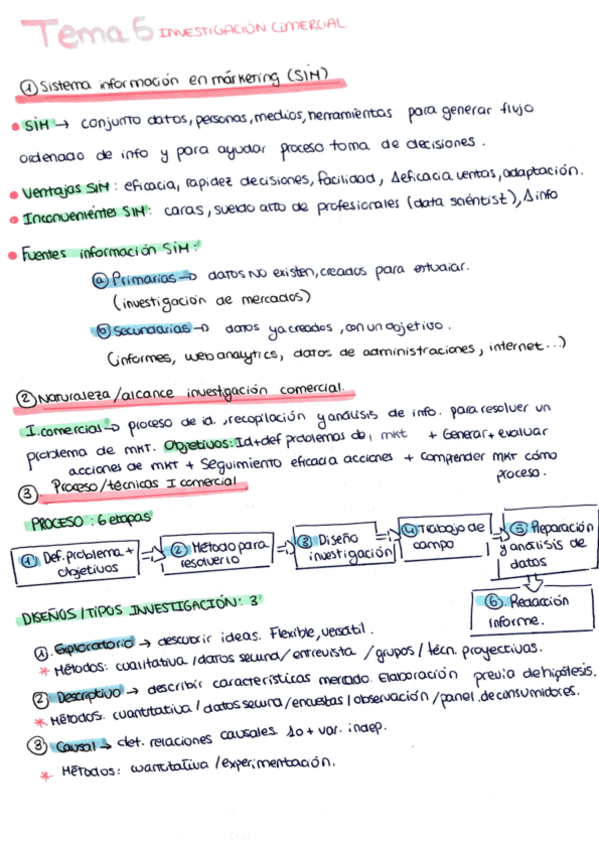 Tema 5 INVESTIGACIÓN COMERCIAL
① Sistema información en márkering (SIM)
• SIM → conjunto datos, personas, medios, herramientas para generar flujo
ordenado de info y para ayudar proceso toma de decisiones.
• Ventajas SIM: eficacia, rapidez decisiones, facilidad, Δeficacia ventas, adaptación.
• Inconvenientes SIM: caras, sueldo alto de profesionales (data scientist), Δinfo
• Fuentes información SIM:
ⓐ Primarias → datos NO existen, creados para estudiar.
(investigación de mercados)
ⓑ Secundarias → datos ya creados, con un objetivo.
(informes, web analytics, datos de administraciones, internet...)
② Naturaleza/alcance investigación comercial.
I. comercial → proceso de id., recopilación y análisis de info. para resolver un
problema de mkt. Objetivos: Id+def problemas do, mkt + Generar+ evaluar
acciones de mkt + Seguimiento eficacia acciones + Comprender mkt cómo
proceso.
③ Proceso/técnicas I comercial
PROCESO: 6 etapas
① Def. problema + objetivos ⇒ ② Método para resolverlo ⇒ ③ Diseño investigación ⇒ ④ Trabajo de campo ⇒ ⑤ Preparación y análisis de datos
⑥. Redacción
informe.
DISEÑOS/TIPOS INVESTIGACIÓN: 3
①. Exploratorio → descubrir ideas. Flexible, versátil.
* Métodos: cualitativa/datos secund/entrevista/grupos/técn. proyectivas.
② Descriptivo → describir características mercado. Elaboración previa de hipótesis.
* Métodos: cuantitativa/datos secund/encuestas/observación/panel de consumidores.
③ Causal → det. relaciones causales. 1o + var. indep.
* Métodos: cuantitativa/experimentación.